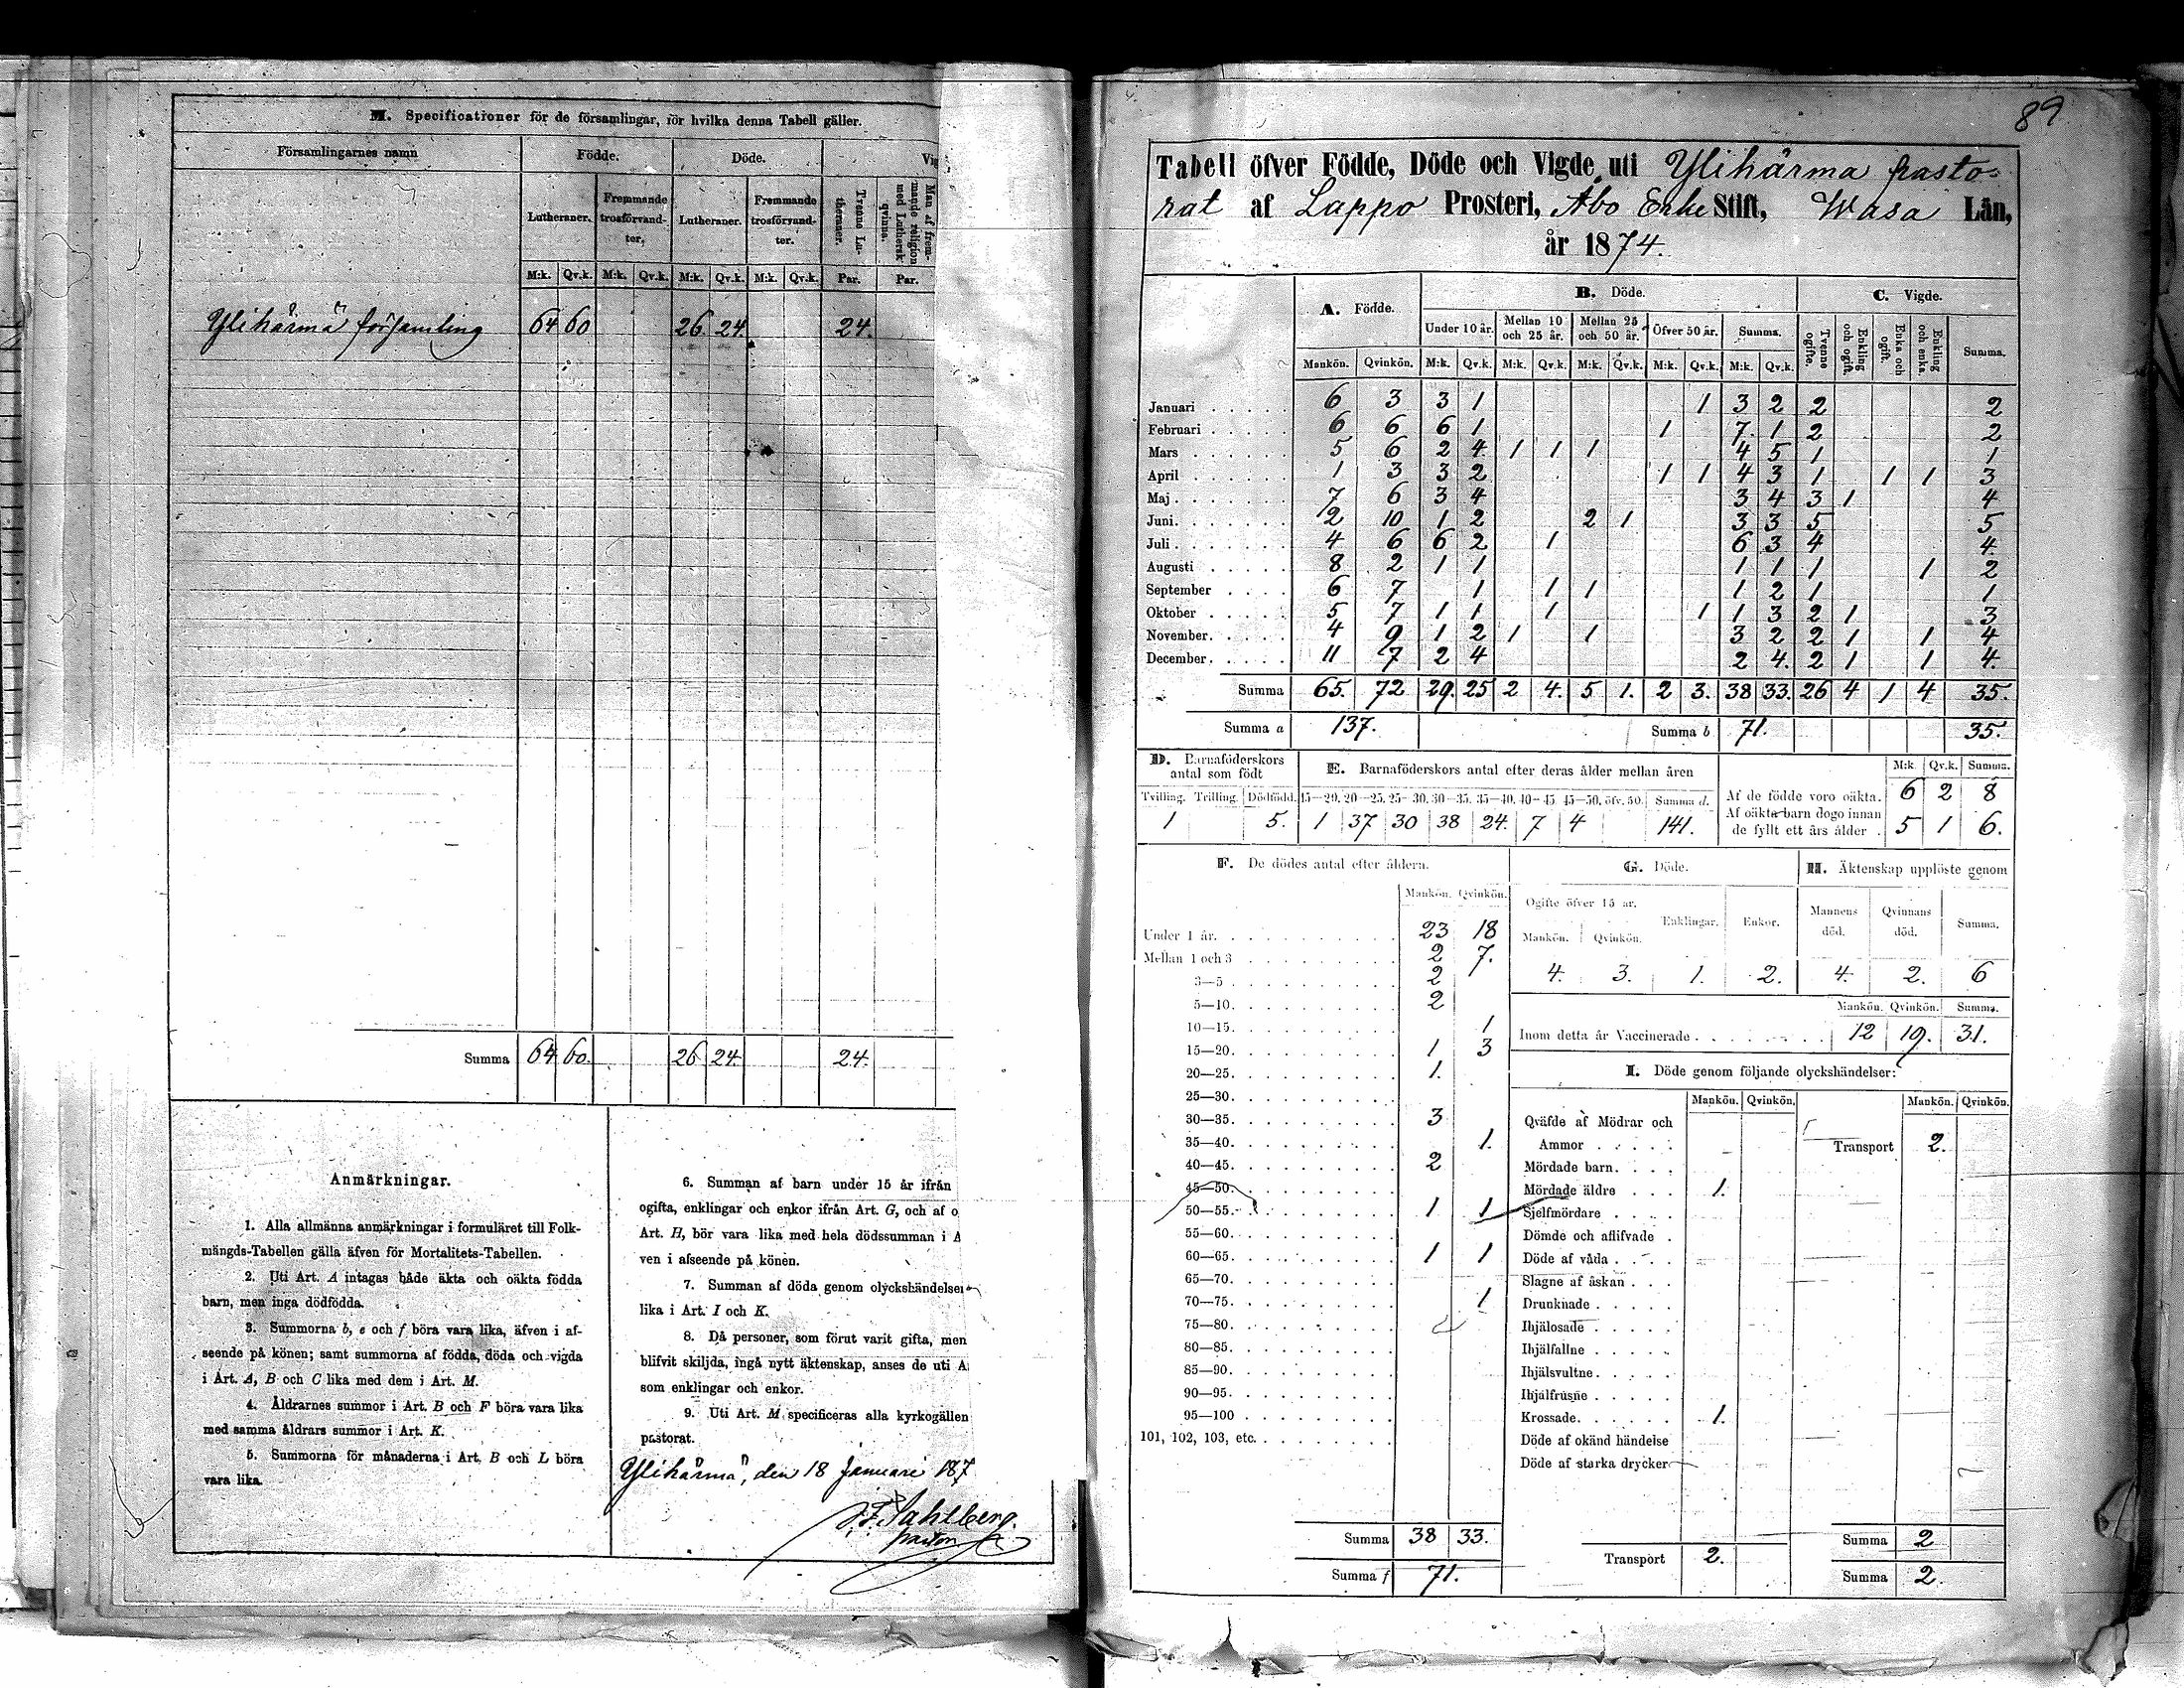 M. Specificationer för de församlingar, för hvilka denna Tabell gäller.
Församlingarnes namn Födde. Döde. Vig
Lutheraner. Fremmande trosförvandter. Lutheraner. Fremmande trosförvandter. Tvenne Lutheraner. Man af fremmande religion med Luthersk qvinna.
M:k. Qv.k. M:k. Qv.k. M:k. Qv.k. M:k. Qv.k. Par. Par.
Ylihärmä församling 64 60 26. 24. 24.
Summa 64 60. 26 24. 24.
Anmärkningar.
1. Alla allmänna anmärkningar i formuläret till Folk-
mängds-Tabellen gälla äfven för Mortalitets-Tabellen.
2. Uti Art. A intagas både äkta och oäkta födda
barn, men inga dödfödda.
3. Summorna b, e och f böra vara lika, äfven i af-
seende på könen; samt summorna af födda, döda och vigda
i Art. A, B och C lika med dem i Art. M.
4. Åldrarnes summor i Art. B och F böra vara lika
med samma åldrars summor i Art. K.
5. Summorna för månaderna i Art. B och L böra
vara lika.
6. Summan af barn under 15 år ifrån
ogifta, enklingar och enkor ifrån Art. G, och af o
Art. H, bör vara lika med hela dödssumman i A
ven i afseende på könen.
7. Summan af döda genom olyckshändelser
lika i Art. I och K.
8. Då personer, som förut varit gifta, men
blifvit skiljda, ingå nytt äktenskap, anses de uti A
som enklingar och enkor.
9. Uti Art. M specificeras alla kyrkogällen
pastorat.
Ylihärmä, den 18 Januari 187
J. F. Sahlberg.
pastor
89
Tabell öfver Födde, Döde och Vigde uti Ylihärma pasto-
rat af Lappo Prosteri, Åbo Erke Stift, Wasa Län,
år 1874.
A. Födde. B. Döde. C. Vigde.
Under 10 år. Mellan 10 och 25 år. Mellan 25 och 50 år. Öfver 50 år. Summa. Tvenne ogifte. Enkling och ogift. Enka och ogift. Enkling och enka. Summa.
Mankön. Qvinkön. M:k. Qv.k. M:k. Qv.k. M:k. Qv.k. M:k. Qv.k. M:k. Qv.k.
Januari 6 3 3 1 1 3 2 2 2
Februari 6 6 6 1 1 7. 1 2 2
Mars 5 6 2 4. 1 1 1 4 5 1 1
April 1 3 3 2 1 1 4 3 1 1 1 3
Maj 7 6 3 4 3 4 3 1 4
Juni 2 10 1 2 2 1 3 3 5 5
Juli 4 6 6 2 1 6 3 4 4.
Augusti 8 2 1 1 1 1 1 1 2
September 6 7 1 1 1 1 2 1 1
Oktober 5 7 1 1 1 1 1 3 2 1 3
November 4 9 1 2 1 1 3 2 2 1 1 4
December 11 7 2 4 2 4. 2 1 1 4.
Summa 65. 72 29. 25 2 4. 5 1. 2 3. 38 33. 26 4 1 4 35.
Summa a 137. Summa b 71. 35.
D. Barnaföderskors antal som födt E. Barnaföderskors antal efter deras ålder mellan åren M:k. Qv.k. Summa.
Tvilling. Trilling. Dödfödd. 15—20. 20—25. 25—30. 30—35. 35—40. 40—45. 45—50. öfv. 50. Summa d.
1 5. 1 37 30 38 24. 7 4 141.
Af de födde voro oäkta. 6 2 8
Af oäkta barn dogo innan
de fyllt ett års ålder . 5 1 6.
F. De dödes antal efter åldern.
Mankön. Qvinkön.
Under 1 år. 23 18
Mellan 1 och 3 2 7.
3—5 2
5—10. 2
10—15. 1
15—20. 1 3
20—25. 1.
25—30.
30—35. 3
35—40. 1.
40—45. 2
45—50.
50—55. 1 1
55—60.
60—65. 1 1
65—70.
70—75. 1
75—80.
80—85.
85—90.
90—95.
95—100
101, 102, 103, etc.
Summa 38 33.
Summa f 71.
G. Döde. H. Äktenskap upplöste genom
Ogifte öfver 15 år. Enklingar. Enkor. Mannens död. Qvinnans död. Summa.
Mankön. Qvinkön.
4. 3. 1. 2. 4. 2. 6
Mankön. Qvinkön. Summa.
Inom detta år Vaccinerade 12 19. 31.
I. Döde genom följande olyckshändelser:
Mankön. Qvinkön. Mankön. Qvinkön.
Qväfde af Mödrar och
Ammor Transport 2.
Mördade barn
Mördade äldre 1.
Sjelfmördare
Dömde och aflifvade
Döde af våda
Slagne af åskan
Drunknade
Ihjälosade
Ihjälfallne
Ihjälsvultne
Ihjälfrusne
Krossade 1.
Döde af okänd händelse
Döde af starka drycker
Summa 2
Transport 2.
Summa 2.